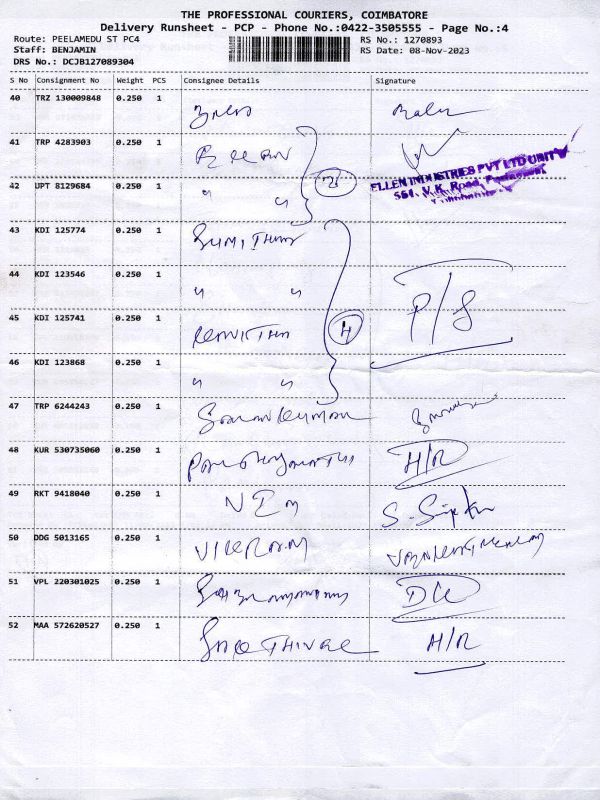 THE PROFESSIONAL COURIERS, COIMBATORE
Delivery Runsheet - PCP - Phone No.:0422-3505555 - Page No.:4
Route: PEELAMEDU ST PC4 RS No.: 1270893
Staff: BENJAMIN RS Date: 08-Nov-2023
DRS No.: DCJB127089304
S No Consignment No Weight PCS Consignee Details Signature
40 TRZ 130009848 0.250 1
41 TRP 4283903 0.250 1
ELLEN INDUSTRIES PVT LTD UNIT V
42 UPT 8129684 0.250 1 " " 2
561, V.K. Road,
43 KDI 125774 0.250 1 SUMITHRA
44 KDI 123546 0.250 1 " " P/S
45 KDI 125741 0.250 1 4
46 KDI 123868 0.250 1 " "
47 TRP 6244243 0.250 1 Saravankumar
48 KUR 530735060 0.250 1 H/R
49 RKT 9418040 0.250 1
50 DDG 5013165 0.250 1 VIKRAM
51 VPL 220301025 0.250 1
52 MAA 572620527 0.250 1 H/R